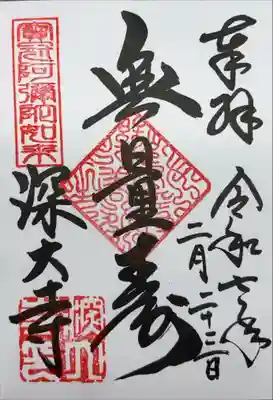 奉拝
令和七年
二月二十三日
無量寿
寳冠阿彌陀如来
深大寺